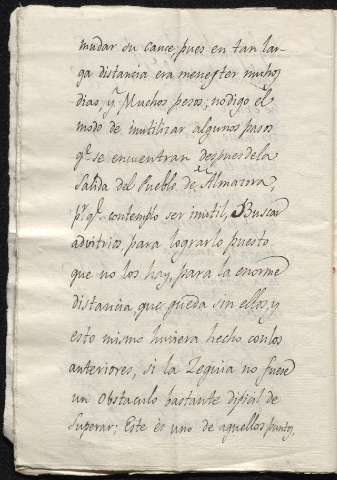 mudar su cauce, pues en tan lar-
ga distancia era menester muchos
dias, y Muchos pesos; no digo el
modo de inutilizar algunos pasos
qe. se encuentran despues de la
Salida del Pueblo de Almazora,
pr. qe. contemplo ser inutil, Buscar
advitrios para lograrlo puesto
que no los hay, para la enorme
distancia que queda sin ellos, y
esto mismo huviera hecho con los
anteriores, si la Zequia no fuese
un Obstaculo bastante dificil de
superar; Este es uno de aquellos puntos,